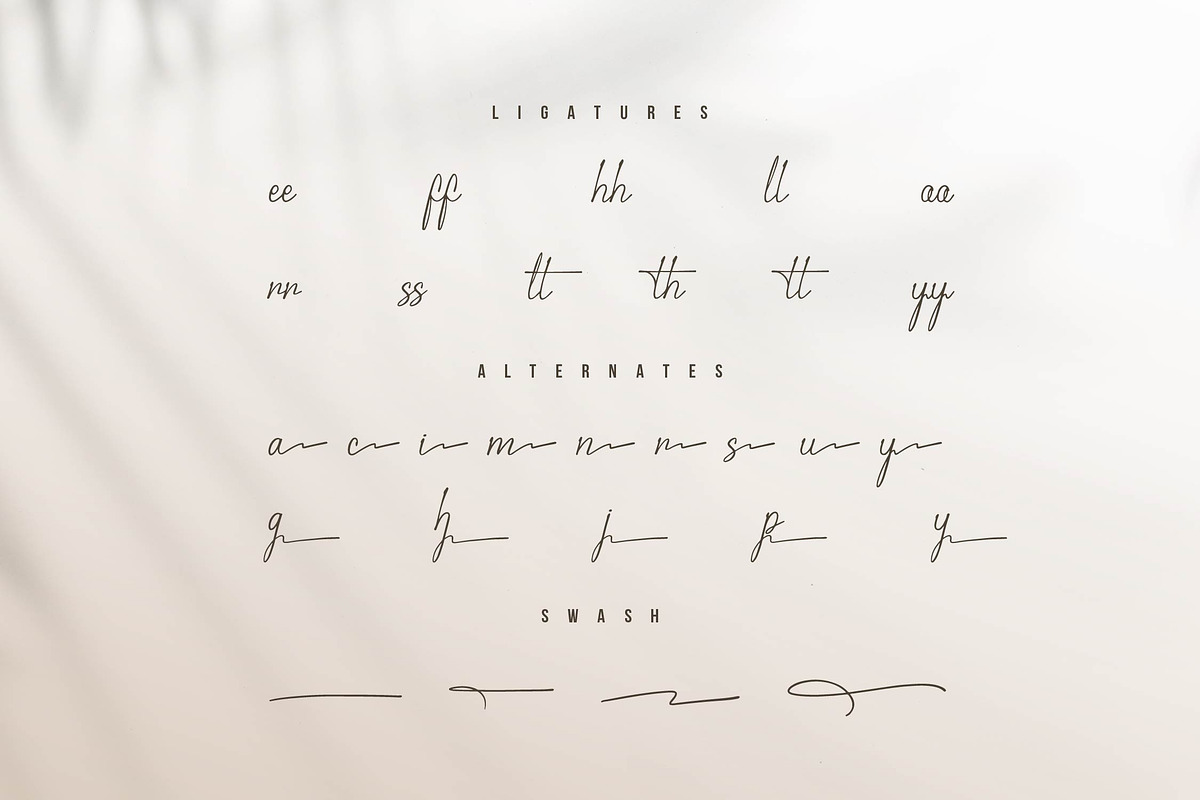 LIGATURES
ee ff hh ll aa
rr ss tl th tt yy
ALTERNATES
a c i m n r s u y
g h j p y
SWASH